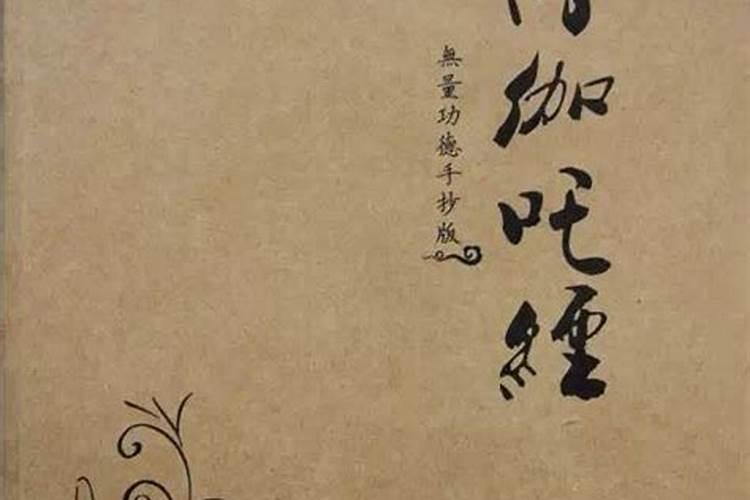 伽吒經
無量功德手抄版